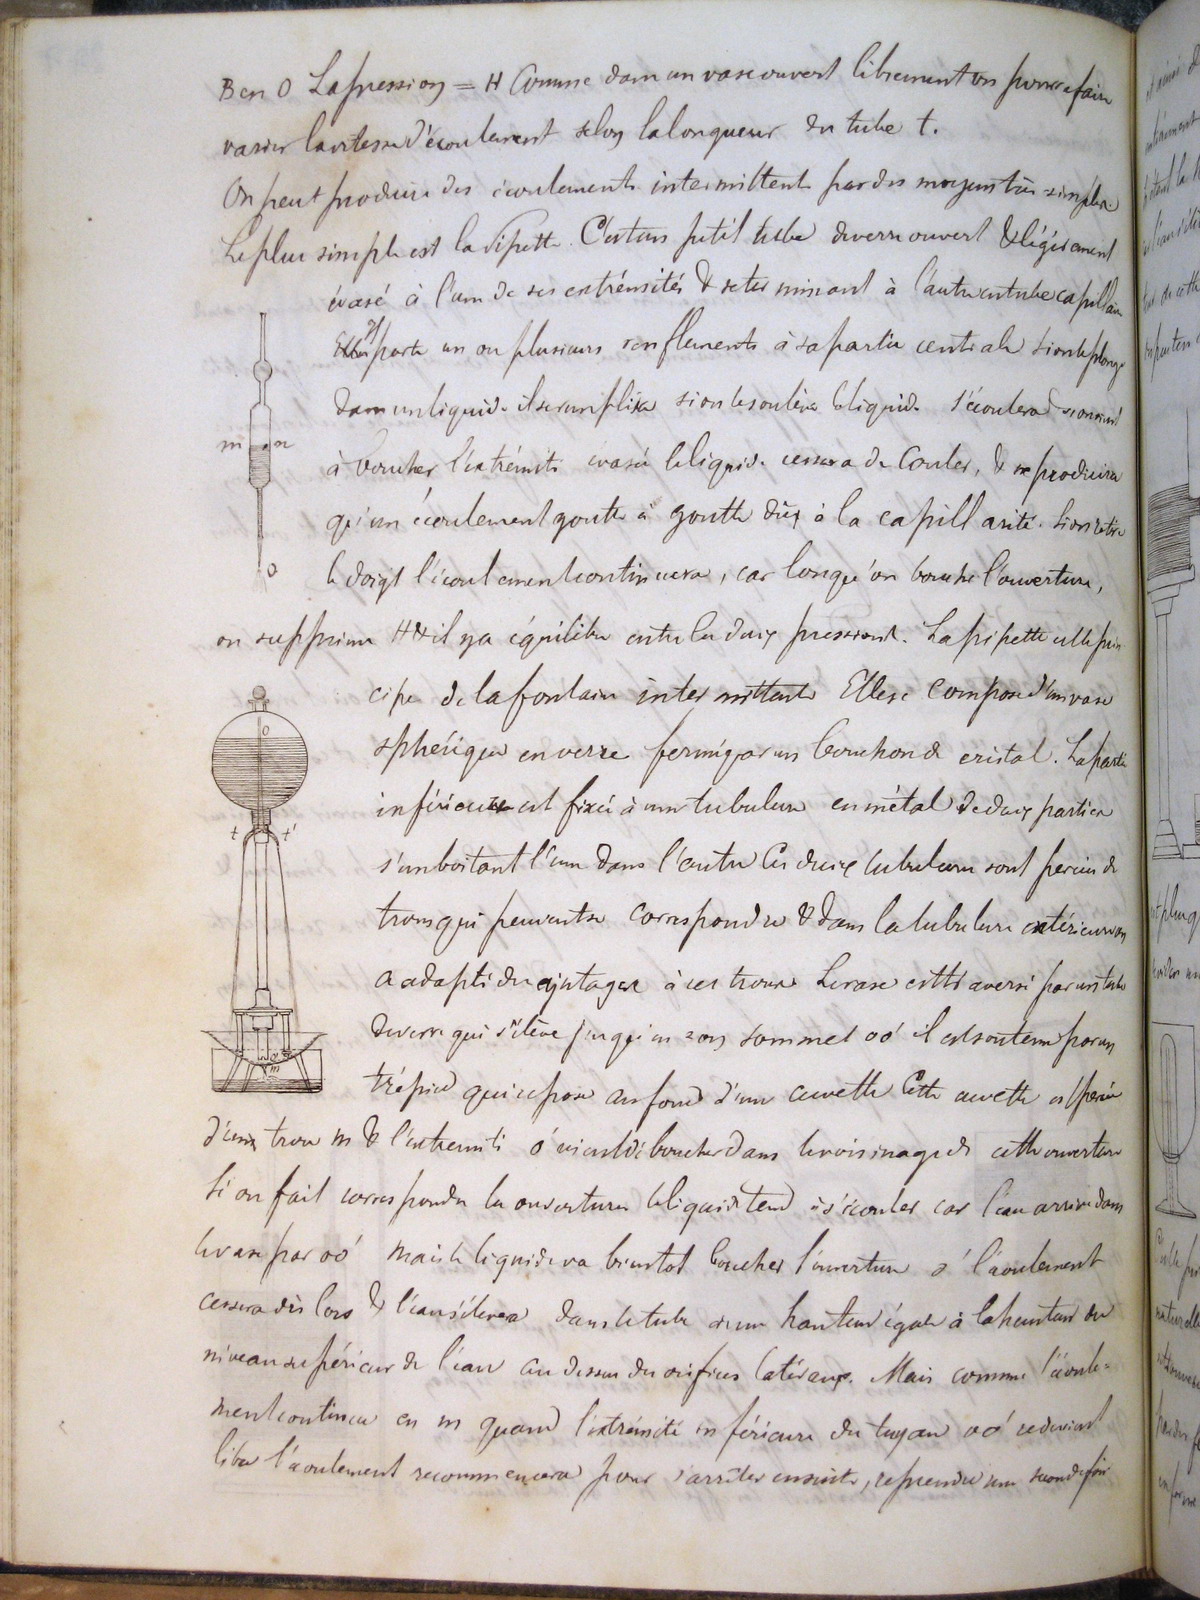 B en O La pression = H Comme dans un vase ouvert librement on pourra faire
varier la vitesse d'écoulement selon la longueur du tube t.
On peut produire des écoulements intermittents par des moyens très simples.
Le plus simple est la Pipette. C'est un petit tube de verre ouvert & légèrement
évasé à l'une de ses extrémités & se terminant à l'autre en tube capillaire
Il porte un ou plusieurs renflements à sa partie centrale si on le plonge
dans un liquide il se remplira si on le soulève le liquide s'écoulera si on vient
à boucher l'extrémité évasée le liquide cessera de couler, & ne produira
qu'un écoulement goutte à goutte dû à la capillarité. Si on retire
le doigt l'écoulement continuera, car lorsqu'on bouche l'ouverture,
on supprime H & il y a équilibre entre les deux pressions. La pipette est le prin
cipe de la fontaine intermittente Elle se compose d'un vase
sphérique en verre fermé par un bouchon de cristal. La partie
inférieure est fixée à une tubulure en métal de deux parties
s'emboitant l'une dans l'autre Ces deux tubulures sont percées de
trous qui peuvent se correspondre & dans la tubulure extérieure on
a adapté des ajutages à ces trous Le vase est traversé par un tube
de verre qui s'élève jusqu'en son sommet oo' il est soutenu par un
trépied qui repose au fond d'une cuvette Cette cuvette est percée
d'un trou m & l'extrémité o' vient déboucher dans le voisinage de cette ouverture
Si on fait correspondre les ouvertures le liquide tend à s'écouler car l'eau arrive dans
le vase par oo' mais le liquide va bientot boucher l'ouverture o' l'écoulement
cessera dès lors & l'eau s'élevera dans le tube à une hauteur égale à la hauteur du
niveau supérieur de l'eau au dessus des orifices latéraux. Mais comme l'écoule=
ment continue en m quand l'extrémité inférieure du tuyau oo' redevient
libre l'écoulement recommencera pour s'arrêter ensuite, reprendre une seconde fois
m n
o
o
t t'
m